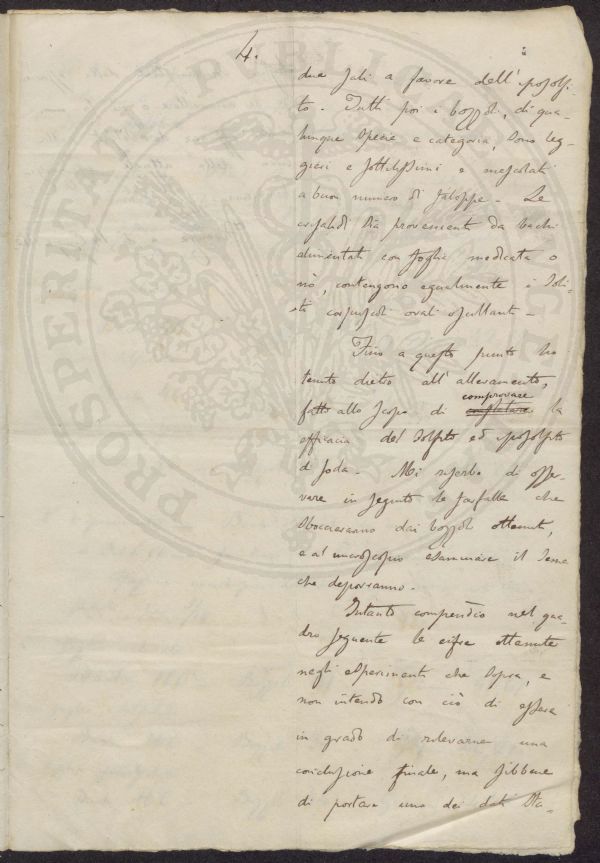 4.
due sali a favore dell'iposolfi-
to. Tutti poi i bozzoli, di qua-
lunque specie e categoria, sono leg-
gieri e sottilissimi e mescolati
a buon numero di faloppe. Le
crisalidi sia provenienti da bachi
alimentati con foglia medicata o
nò, contengono egualmente i soli-
ti corpuscoli ovali oscillanti.
Fino a questo punto ho
tenuto dietro all'allevamento,
fatto allo scopo di comprovare la
efficacia del solfito ed iposolfito
di soda. Mi riserbo di osser-
vare in seguito le farfalle che
sbocceranno dai bozzoli ottenuti,
e al microscopio esaminare il seme
che deporranno.
Intanto compendio nel qua-
dro seguente le cifre ottenute
negli esperimenti che sopra, e
non intendo con ciò di essere
in grado di rilevarne una
conclusione finale, ma sibbene
di portare uno dei dati sta-
PROSPERITATI PVBLIC